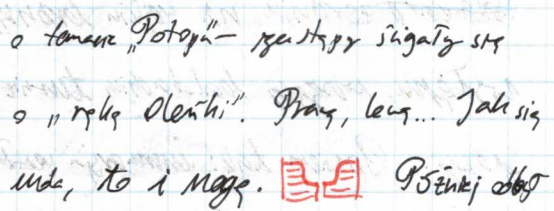 o temacie „Potopu” — zastępy ścigały się
o „rękę Oleńki”. Prawą, lewą... Jak się
uda, to i nogę. Później odbył